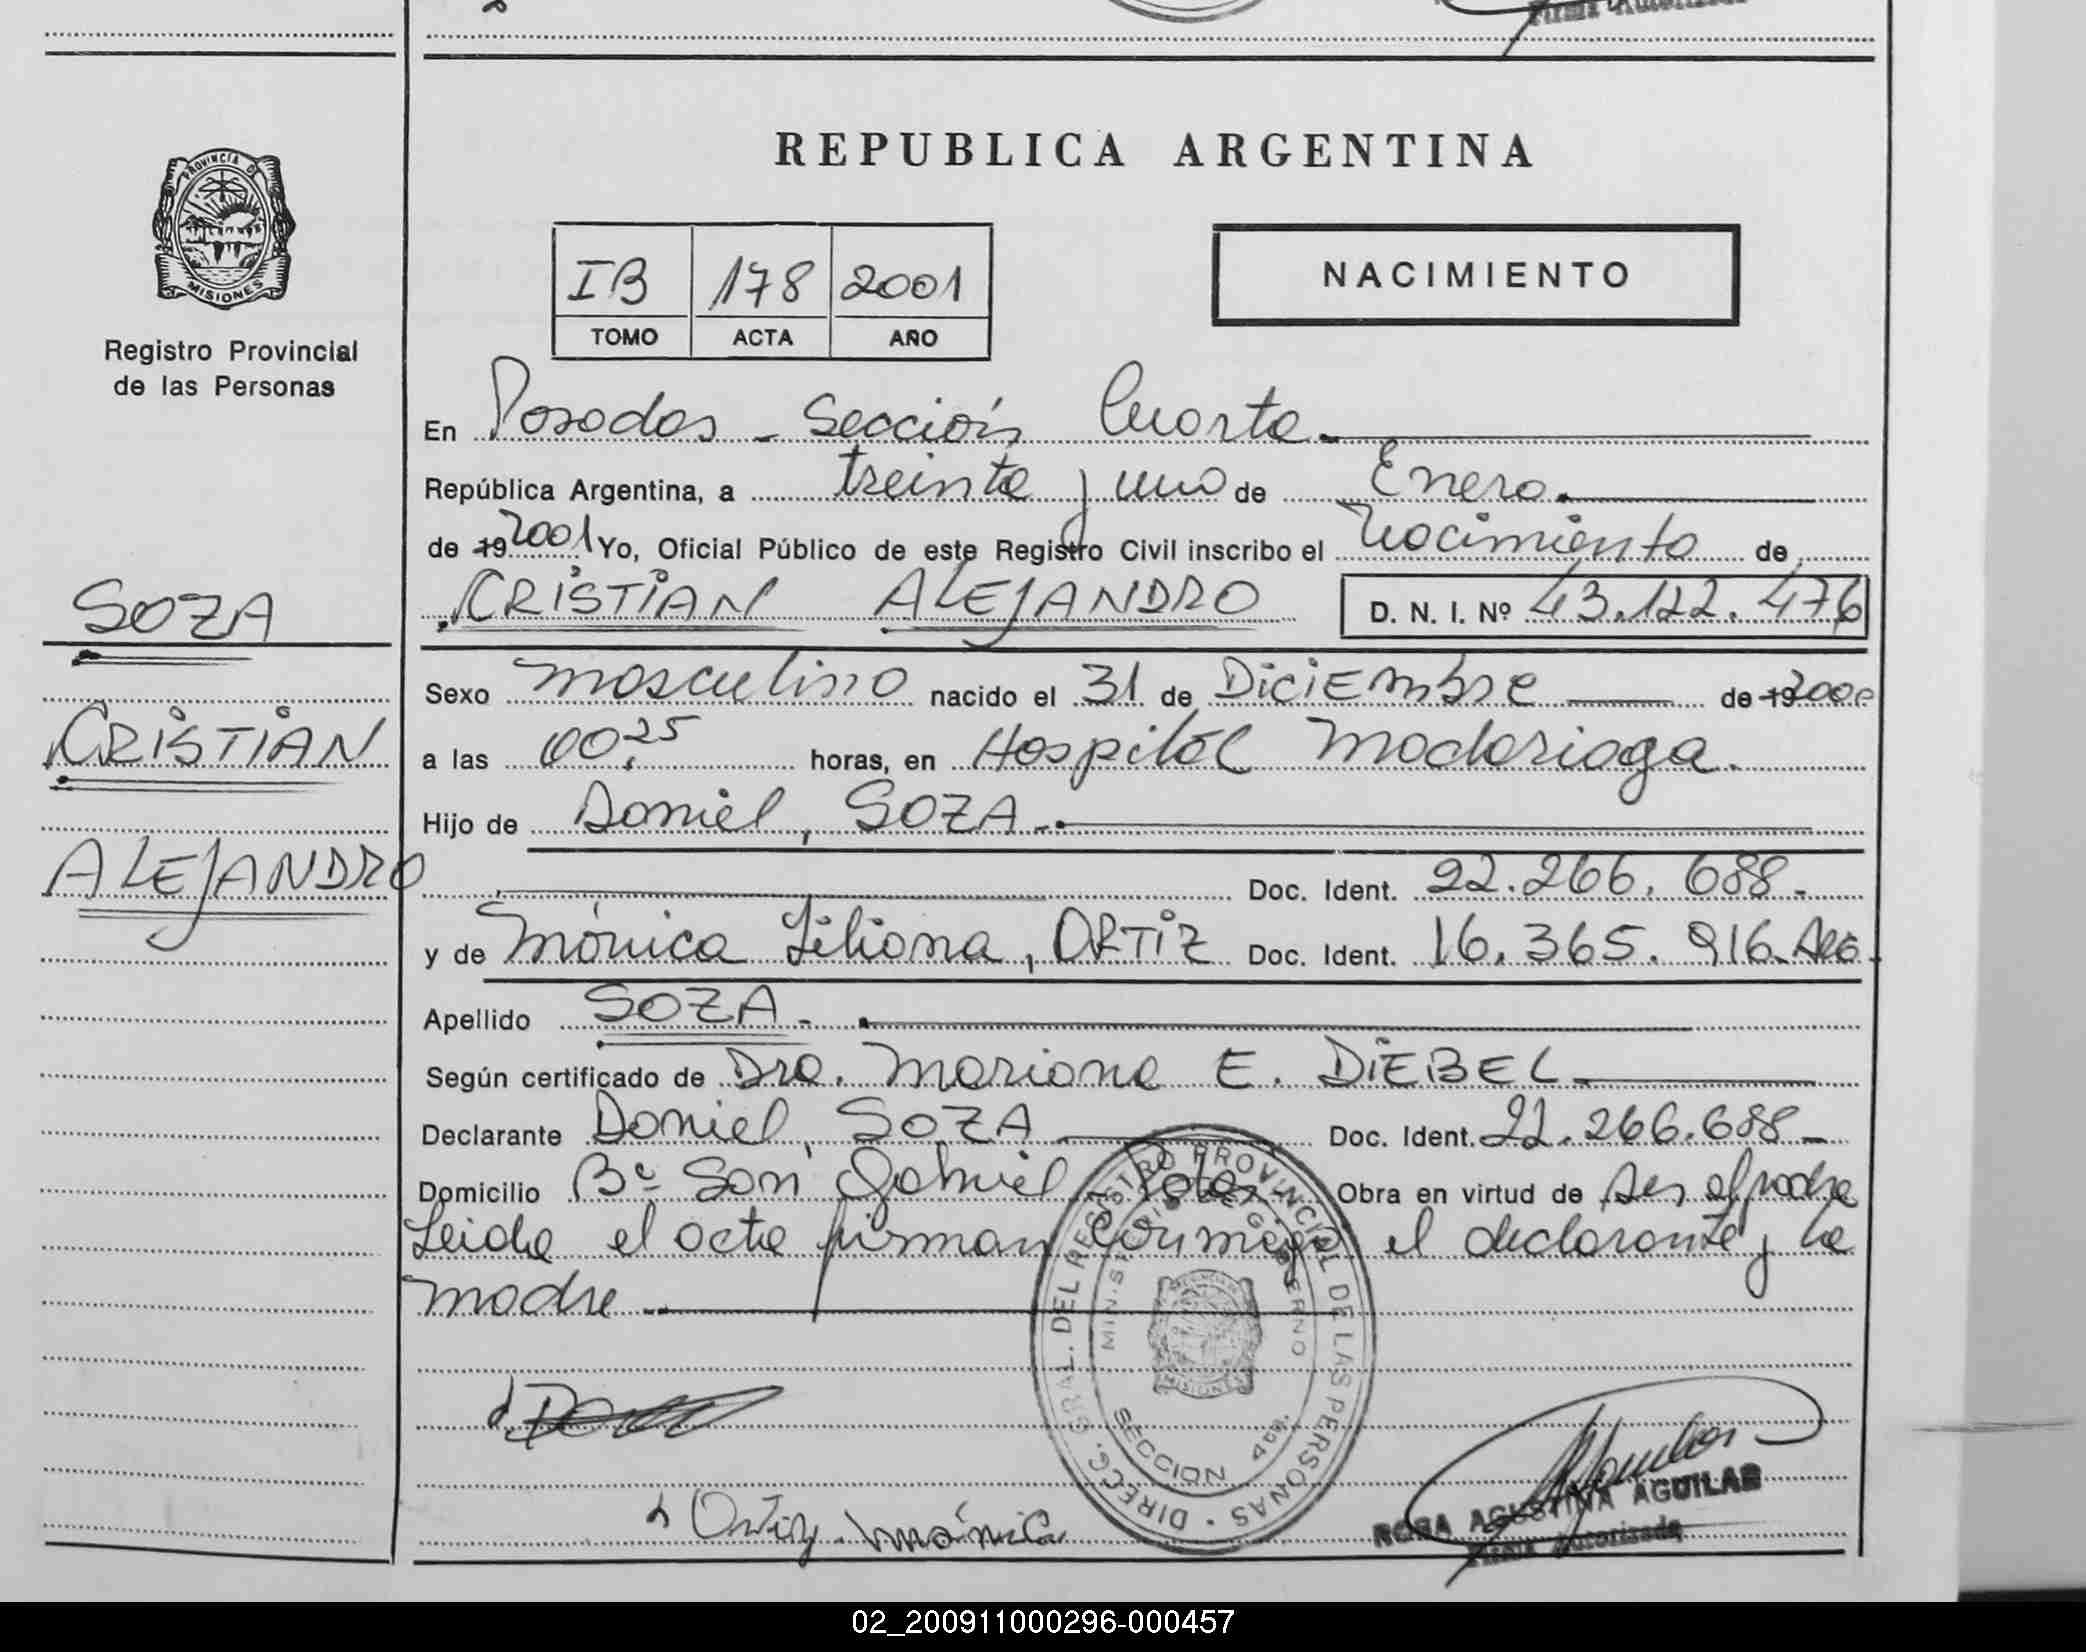 Firma Autorizada
REPUBLICA ARGENTINA
PROVINCIA DE
MISIONES
Registro Provincial
de las Personas
IB 178 2001
TOMO ACTA AÑO
NACIMIENTO
En Posadas - Sección Cuarta.
República Argentina, a treinta y uno de Enero.
de 19 2001 Yo, Oficial Público de este Registro Civil inscribo el Nacimiento de
SOZA
CRISTIAN ALEJANDRO D. N. I. Nº 43.122.476
Sexo masculino nacido el 31 de Diciembre de 19 2000
CRISTIAN
a las 00,25 horas, en Hospital Madariaga.
Hijo de Daniel, SOZA.-
ALEJANDRO
Doc. Ident. 22.266.688.-
y de Mónica Liliana, ORTIZ Doc. Ident. 16.365.916.
Apellido SOZA.-
Según certificado de Dra. Mariana E. DIEBEL.
Declarante Daniel, SOZA Doc. Ident. 22.266.688-
Domicilio Bº San Gabriel Pdas.- Obra en virtud de ser el padre
Leida el acta firman conmigo el declarante y la
madre.-
DIRECC. GRAL. DEL REGISTRO PROVINCIAL DE LAS PERSONAS
MINISTERIO DE GOBIERNO
MISIONES
SECCION 4ta.
Ortiz Mónica
ROSA AGUSTINA AGUILAR
Firma Autorizada
02_200911000296-000457